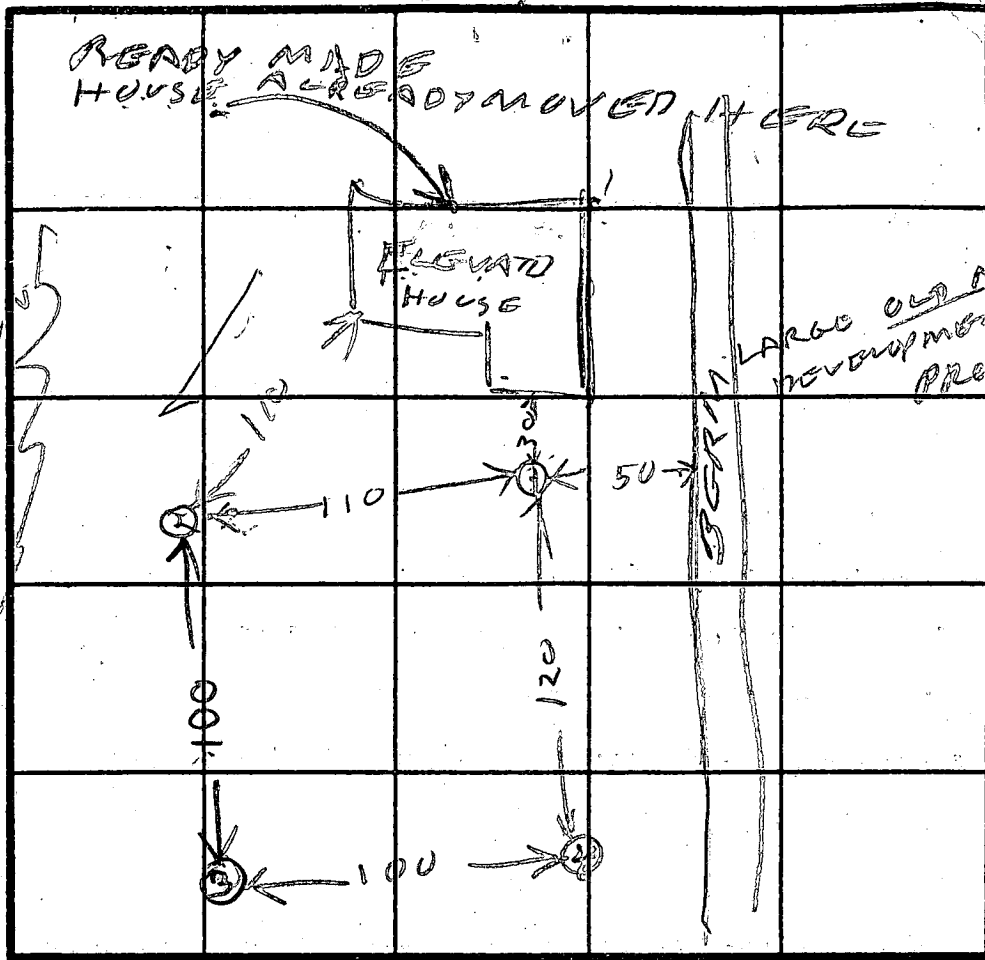 READY MADE
HOUSE ALREADY MOVED HERE
ELEVATD
HOUSE
LARGE OLD
DEVELOPME
PRO
BERM
110
30
110
50
120
100
100